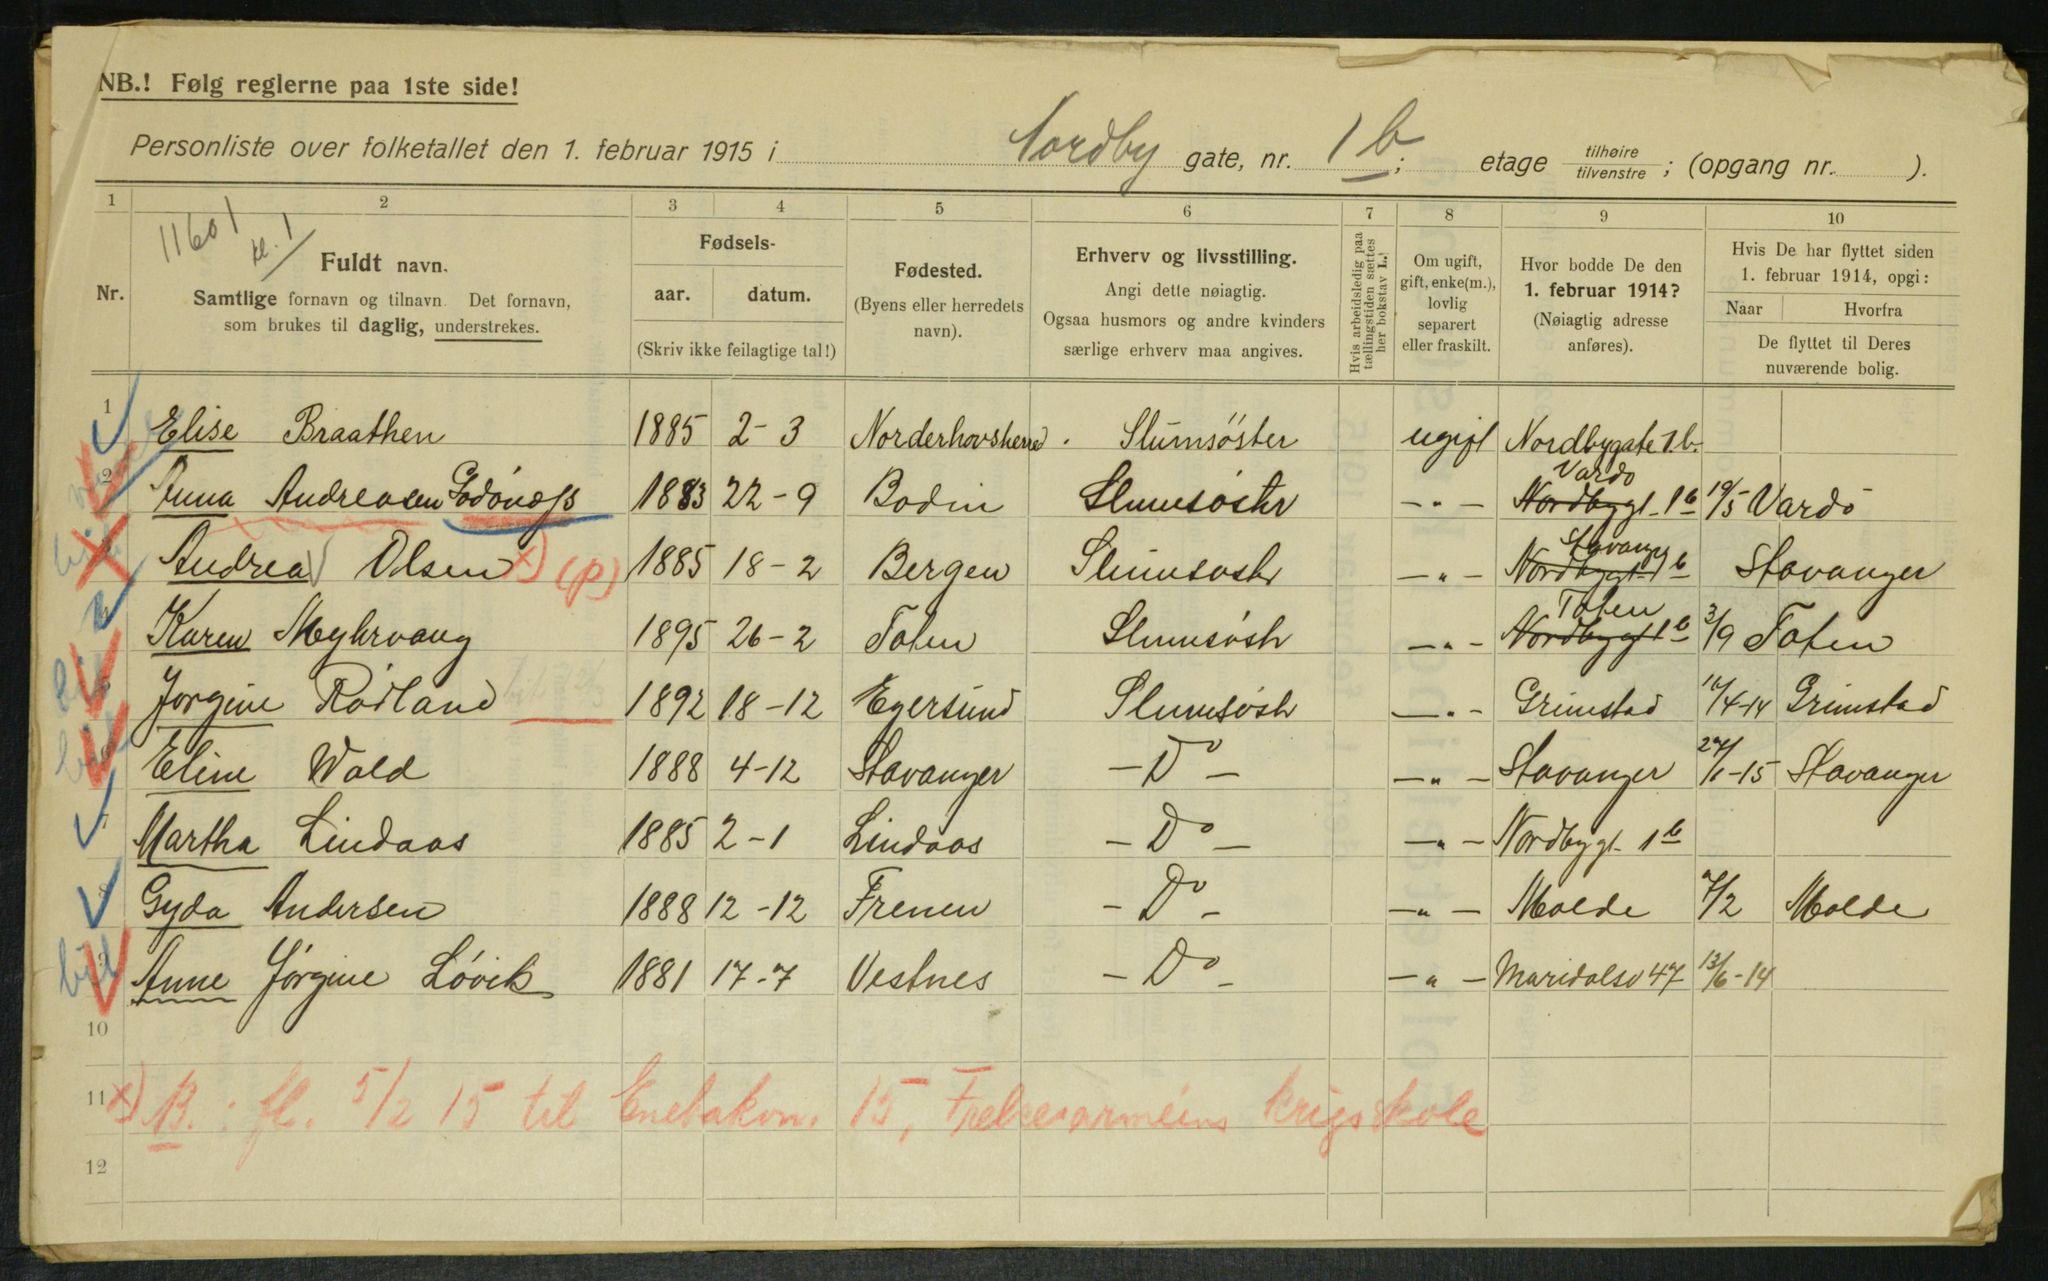 NB.! Følg reglerne paa 1ste side!
Personliste over folketallet den 1. februar 1915 i Nordby gate, nr. 1 b; etage tilhøire tilvenstre ; (opgang nr. ).
1 2 3 4 5 6 7 8 9 10
11601
kl. 1
Nr.
Fuldt navn.
Samtlige fornavn og tilnavn. Det fornavn,
som brukes til daglig, understrekes.
Fødsels-
aar. datum.
(Skriv ikke feilagtige tal!)
Fødested.
(Byens eller herredets
navn).
Erhverv og livsstilling.
Angi dette nøiagtig.
Ogsaa husmors og andre kvinders
særlige erhverv maa angives.
Hvis arbeidsledig paa
tællingstiden sættes
her bokstav L.!
Om ugift,
gift, enke(m.),
lovlig
separert
eller fraskilt.
Hvor bodde De den
1. februar 1914?
(Nøiagtig adresse
anføres).
Hvis De har flyttet siden
1. februar 1914, opgi:
Naar Hvorfra
De flyttet til Deres
nuværende bolig.
1 Elise Braathen 1885 2-3 Norderhovsherred. Slumsöster ugift Nordbygate 1.b.
Vardö
2 Anna Andreasen Godönæss 1883 22-9 Bodin Slumsöstr -"- Nordbygt. 1b 19/5 Vardö
Stavanger
Andrea Olsen x) (p) 1885 18-2 Bergen Slumsöstr -"- Nordbygt 1b Stavanger
Toten
4 Karen Myhrvang 1895 26-2 Toten Slumsöstr -"- Nordbygt 1b 3/9 Toten
Jorgine Rödland 1892 18-12 Egersund Slumsöstr -"- Grimstad 14-14 Grimstad
Eline Wold 1888 4-12 Stavanger - Do - -"- Stavanger 27/1-15 Stavanger
Martha Lindaas 1885 2-1 Lindaas - Do - -"- Nordbygt. 1b
8 Gyda Andersen 1888 12-12 Frenen - Do - -"- Molde 7/2 Molde
9 Anne Jörgine Lövik 1881 17-7 Vestnes - Do - -"- Maridalsv 47 13/6-14
10
11 x) B.: fl. 5/2 15 til Enebakvn. 15, Frelsesarméins krigsskole
12